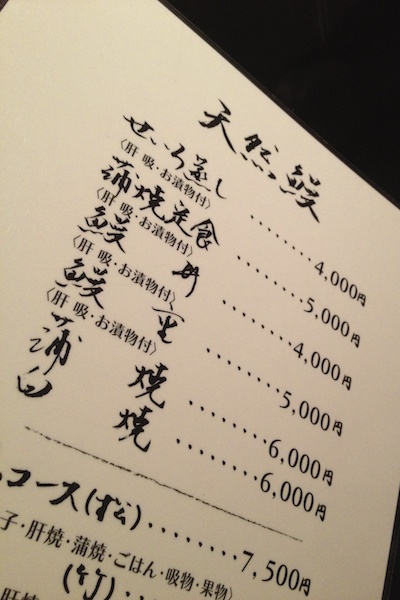 天然鰻
せいろ蒸し ········ 4,000円
〈肝吸・お漬物付〉
蒲焼定食 ········ 5,000円
〈肝吸・お漬物付〉
鰻丼 ········ 4,000円
〈肝吸・お漬物付〉
鰻重 ········ 5,000円
〈肝吸・お漬物付〉
蒲焼 ········ 6,000円
白焼 ········ 6,000円
コース(松) ········ 7,500円
子・肝焼・蒲焼・ごはん・吸物・果物〉
(竹) ··
肝焼